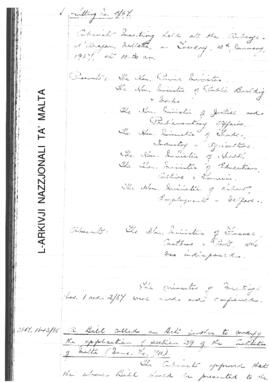 L-ARKIVJI NAZZJONALI TA' MALTA
Cabinet Meeting held at the Auberge
d'Aragon, Valletta, on Tuesday,
1957, at
Presents: The Hon. Prime Minister
The Hon. Minister of Public Building
& Works
The Hon. Minister of Justice and
Parliamentary Affairs
The Hon. Minister of Trade,
Industry & Agriculture
The Hon. Minister of Health
The Hon. Minister of Education,
Culture & Tourism
The Hon. Minister of Labour,
Employment & Welfare.
Absents: The Hon. Minister of Finance,
Customs & Port who
was indisposed.
The minutes of meetings
Nos. 1 and 2/57 were read and confirmed.
A Bill called an Act further to modify
the application of section 39 of the Constitution
of Malta
The Cabinet approved that
the above Bill should be presented to the